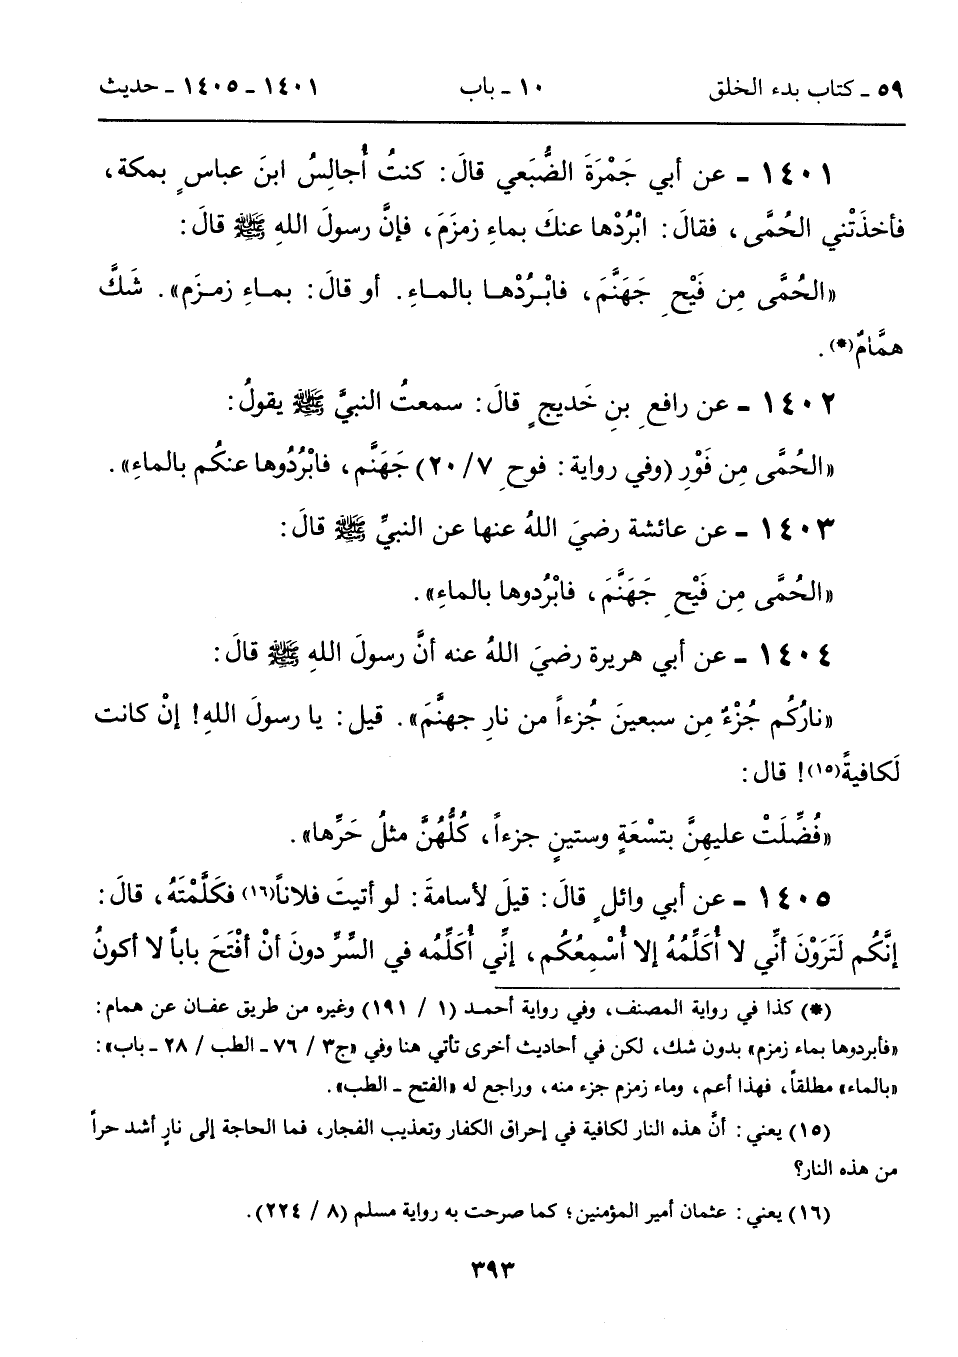 ٥٩ ـ كتاب بدء الخلق ١٠ ـ باب ١٤٠١ ـ ١٤٠٥ ـ حديث
١٤٠١ ـ عن أبي جَمْرَةَ الضُّبَعي قالَ: كنتُ أُجالِسُ ابنَ عباسٍ بمكة،
فأخذَتْني الحُمَّى، فقالَ: ابْرُدْها عنكَ بماءِ زمزَمَ، فإنَّ رسولَ اللهِ ﷺ قالَ:
«الحُمَّى مِن فَيْحِ جَهَنَّمَ، فابْرُدْها بالماءِ. أو قالَ: بماءِ زمزَم». شَكَّ
همَّامٌ(*).
١٤٠٢ ـ عن رافعِ بنِ خَديجٍ قالَ: سمعتُ النبيَّ ﷺ يقولُ:
«الحُمَّى مِن فَوْرِ (وفي رواية: فوحِ ٢٠/٧) جَهَنَّم، فابْرُدُوها عنكُم بالماءِ».
١٤٠٣ ـ عن عائشة رضيَ اللهُ عنها عن النبيِّ ﷺ قالَ:
«الحُمَّى مِن فَيْحِ جَهَنَّمَ، فابْرُدوها بالماءِ».
١٤٠٤ ـ عن أبي هريرة رضيَ اللهُ عنه أنَّ رسولَ اللهِ ﷺ قالَ:
«نارُكُم جُزْءٌ مِن سبعينَ جُزءاً من نارِ جهنَّمَ». قيل: يا رسولَ اللهِ! إنْ كانت
لَكافيةً(١٥)! قال:
«فُضِّلَتْ عليهِنَّ بتسْعَةٍ وستينٍ جزءاً، كُلُّهُنَّ مثلُ حَرِّها».
١٤٠٥ ـ عن أبي وائلٍ قالَ: قيلَ لأسامةَ: لو أتيتَ فلاناً(١٦) فكَلَّمْتَهُ، قالَ:
إنَّكُم لَتَرَوْنَ أنِّي لا أُكَلِّمُهُ إلا أُسْمِعُكُم، إنِّي أُكَلِّمُه في السِّرِّ دونَ أنْ أفْتَحَ باباً لا أكونُ
(*) كذا في رواية المصنف، وفي رواية أحمد (١ / ١٩١) وغيره من طريق عفان عن همام:
«فأبردوها بماء زمزم» بدون شك، لكن في أحاديث أخرى تأتي هنا وفي «ج٣ / ٧٦ ـ الطب / ٢٨ ـ باب»:
«بالماء» مطلقاً، فهذا أعم، وماء زمزم جزء منه، وراجع له «الفتح ـ الطب».
(١٥) يعني: أنَّ هذه النار لكافية في إحراق الكفار وتعذيب الفجار، فما الحاجة إلى نارٍ أشد حراً
من هذه النار؟
(١٦) يعني: عثمان أمير المؤمنين؛ كما صرحت به رواية مسلم (٨ / ٢٢٤).
٣٩٣